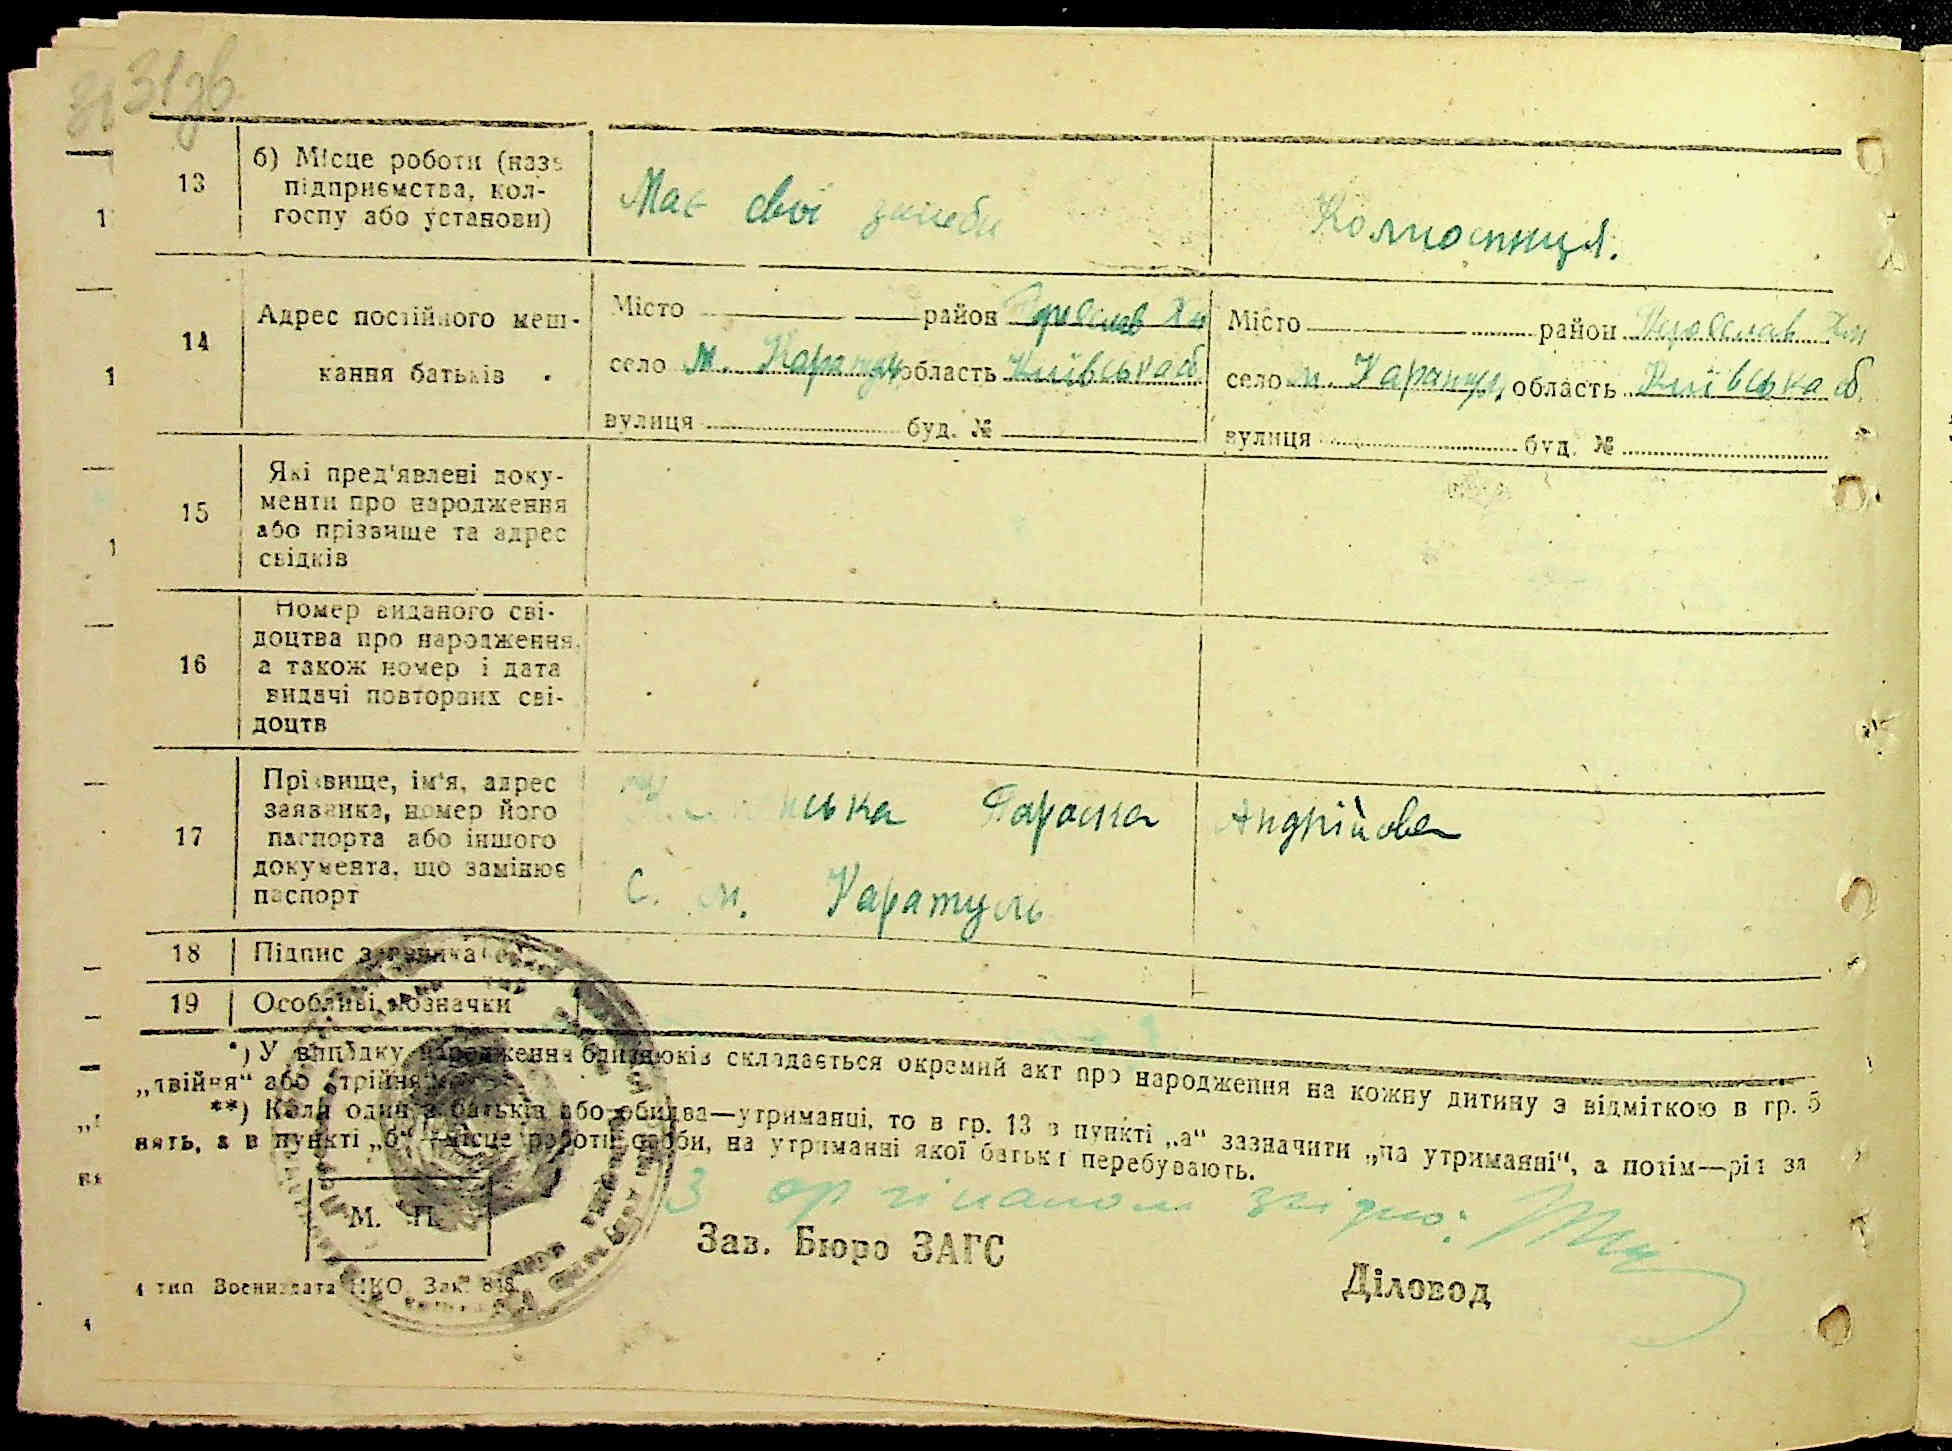 31 зв.
13
б) Місце роботи (назв
підприємства, кол-
госпу або установи)
Має свої
14
Адрес постійного меш-
кання батьків
Місто район
село м. Каратуль область Київська об
вулиця буд. №
Місто район
село м. Каратуль область Київська об.
вулиця буд. №
15
Які пред'явлені доку-
менти про народження
або прізвище та адрес
свідків
16
Номер виданого сві-
доцтва про народження,
а також номер і дата
видачі повторних сві-
доцтв
17
Прізвище, ім'я, адрес
заявника, номер його
паспорта або іншого
документа, що замінює
паспорт
Параска Андрійовна
С. м. Каратуль
18 Підпис заявника
19 Особливі позначки
*) У випадку народження близнюків складається окремий акт про народження на кожну дитину з відміткою в гр. 5
„двійня“ або „трійня“
**) Коли один з батьків або обидва—утриманці, то в гр. 13 в пункті „а“ зазначити „на утриманні“, а потім—рід за
нять, а в пункті „б“ місце роботи особи, на утриманні якої батьки перебувають.
З оригіналом звірно:
М. П.
Зав. Бюро ЗАГС
Діловод
4 тип Воениздата НКО. Зак. 848